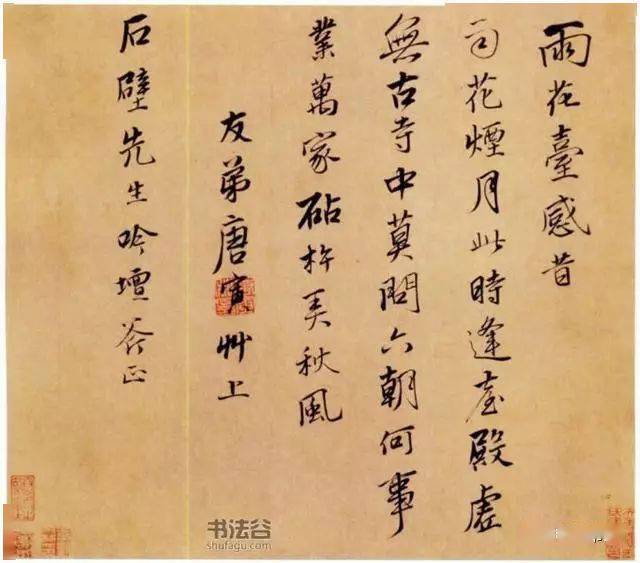 雨花臺感昔
司花煙月此時逢臺殿虛
無古寺中莫問六朝何事
業萬家砧杵美秋風
友弟唐寅艸上
石壁先生吟壇斧正
书法谷
shufagu.com